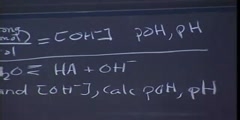 = [OH⁻] pOH, pH
H₂O ⇌ HA + OH⁻
and [OH⁻], calc pOH, pH